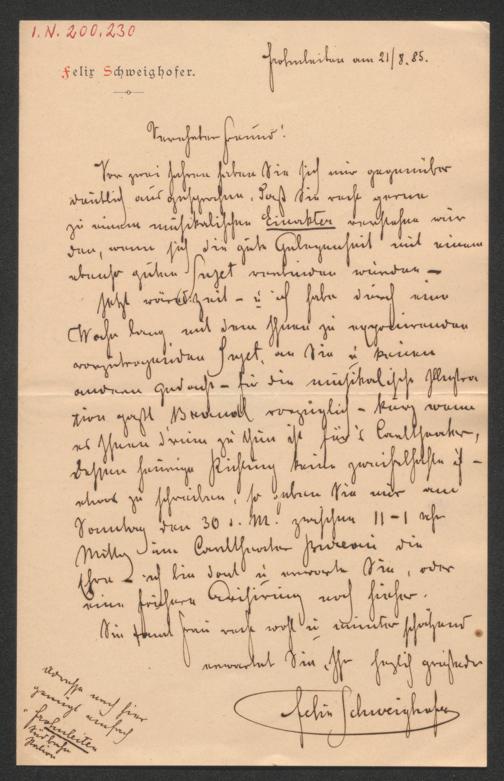 I.N. 200,230
Felix Schweighofer.
Frohnleiten am 21/8.85.
Verehrter Freund!
Vor zwei Jahren haben Sie sich mir gegenüber
deutlich ausgesprochen, daß Sie recht gerne
zu einem musikalischen Einakter verstehen wür
den, wenn sich die gute Gelegenheit mit einem
ebenso guten Sujet verbinden würden –
Jetzt wär's Zeit – u ich habe durch eine
Woche lang mit dem Ihnen zu
vorzutragenden Sujet, an Sie u keinen
andern gedacht – für die musikalische Illustra
tion paßt Brandl vorzüglich – kurz wenn
es Ihnen d'rum zu thun ist für's Carltheater,
dessen heurige Richtung keine zweifelhafte ist –
etwas zu schreiben, so geben Sie mir am
Sonntag den 30 d. M. zwischen 11–1 Uhr
Mittag im Carltheater Bureau die
Ehre – ich bin dort u erwarte Sie, oder
eine frühere Avisirung noch hieher.
Sie sammt Frau recht wohl u munter schätzend
erwartet Sie, Ihr herzlich grüßender
Felix Schweighofer
Adresse nach hier
genügt einfach
Frohnleiten
Südbahn
Station